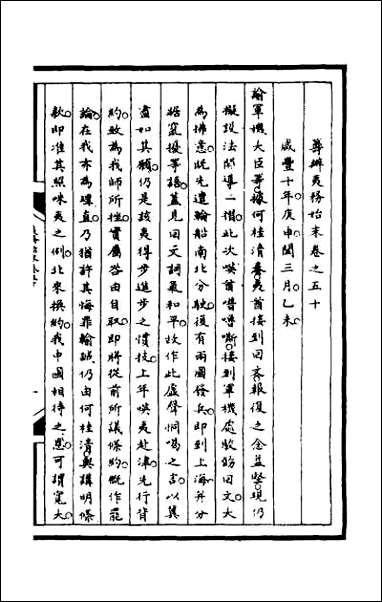 籌辦夷務始末卷之五十
咸豐十年庚申閏三月乙未
諭軍機大臣等據何桂清奏夷酋接到回文報復之念益堅現仍
擬設法開導一摺此次㖿酋嚕嘶接到軍機處駁飭回文大
為拂意既先遣輪船南北分駛後有兩國發兵即到上海并分
踞竄擾等語蓋見回文詞氣和平故作此虛聲恫喝之言以冀
盡如其願仍是該夷得步進步之慣技上年㖿夷赴津先行背
約致為我師所挫實屬咎由自取即將從前所議條約概作罷
論在我亦為理直乃猶許其悔罪輸誠仍由何桂清與講明條
款即准其照咪夷之例北來換約我中國相待之恩可謂寬大